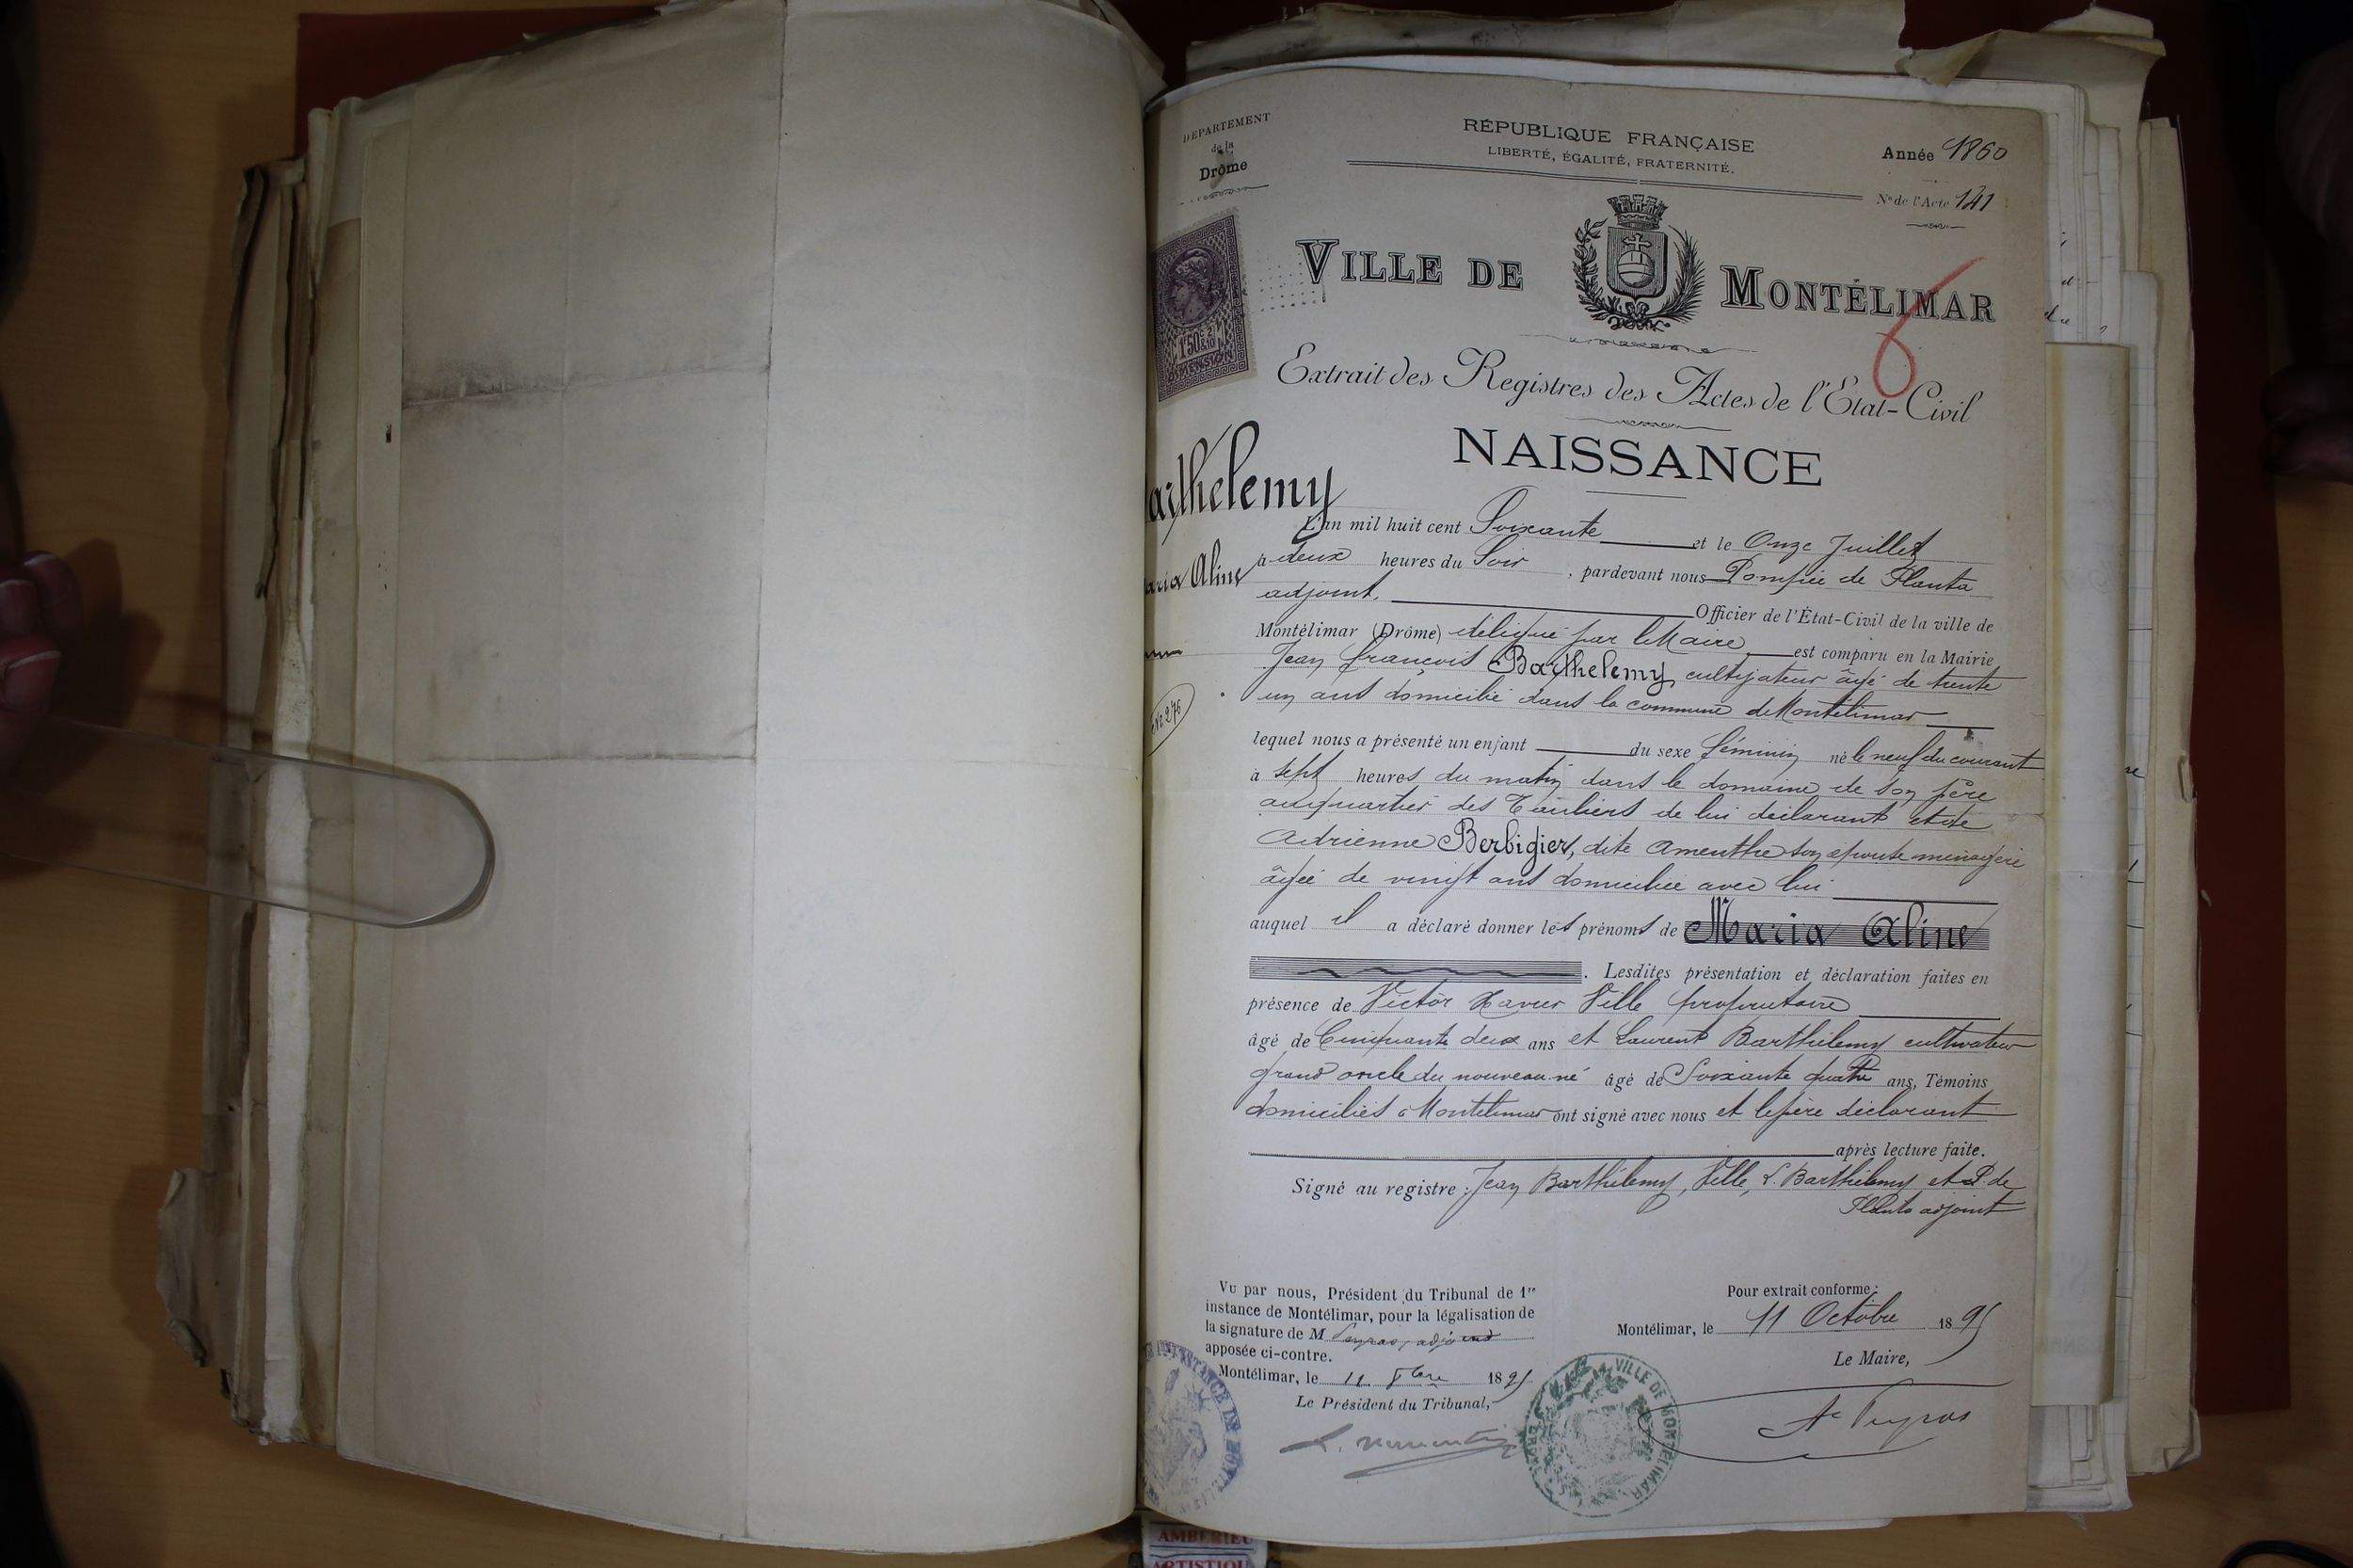 DÉPARTEMENT
de la
Drôme
RÉPUBLIQUE FRANÇAISE
LIBERTÉ, ÉGALITÉ, FRATERNITÉ.
Année 1860
N° de l'Acte 141
VILLE DE MONTÉLIMAR
6
1F50c
DIMENSION
Extrait des Registres des Actes de l'État-Civil
NAISSANCE
arthélemy
aria Aline
L'an mil huit cent Soixante et le Onze Juillet
à deux heures du Soir, pardevant nous Pompée de Planta
adjoint. Officier de l'État-Civil de la ville de
Montélimar (Drôme) délégué par le Maire est comparu en la Mairie
Jean françois Barthelemy cultivateur âgé de trente
un ans domicilié dans la commune de Montélimar
lequel nous a présenté un enfant du sexe féminin né le neuf du courant
à sept heures du matin dans le domaine de son père
au quartier des de lui déclarant et de
Adrienne Berbigier, dite Amenthe son épouse ménagère
âgée de vingt ans domiciliée avec lui
auquel il a déclaré donner les prénoms de Maria Aline
. Lesdites présentation et déclaration faites en
présence de Victor Xavier Ville propriétaire
âgé de Cinquante deux ans et Laurent Barthélemy cultivateur
grand oncle du nouveau né âgé de Soixante quatre ans, Témoins
domiciliés à Montélimar ont signé avec nous et le père déclarant
après lecture faite.
Signé au registre : Jean Barthélemy, Ville, L. Barthélemy et P. de
Planta adjoint
Vu par nous, Président du Tribunal de 1re
instance de Montélimar, pour la légalisation de
la signature de M Peyras, adjoint
apposée ci-contre.
Montélimar, le 11 8bre 1895
Le Président du Tribunal,
Pour extrait conforme :
Montélimar, le 11 Octobre 1895
Le Maire,
A Peyras
VILLE DE MONTÉLIMAR
AMBERIEU
ARTISTIQU